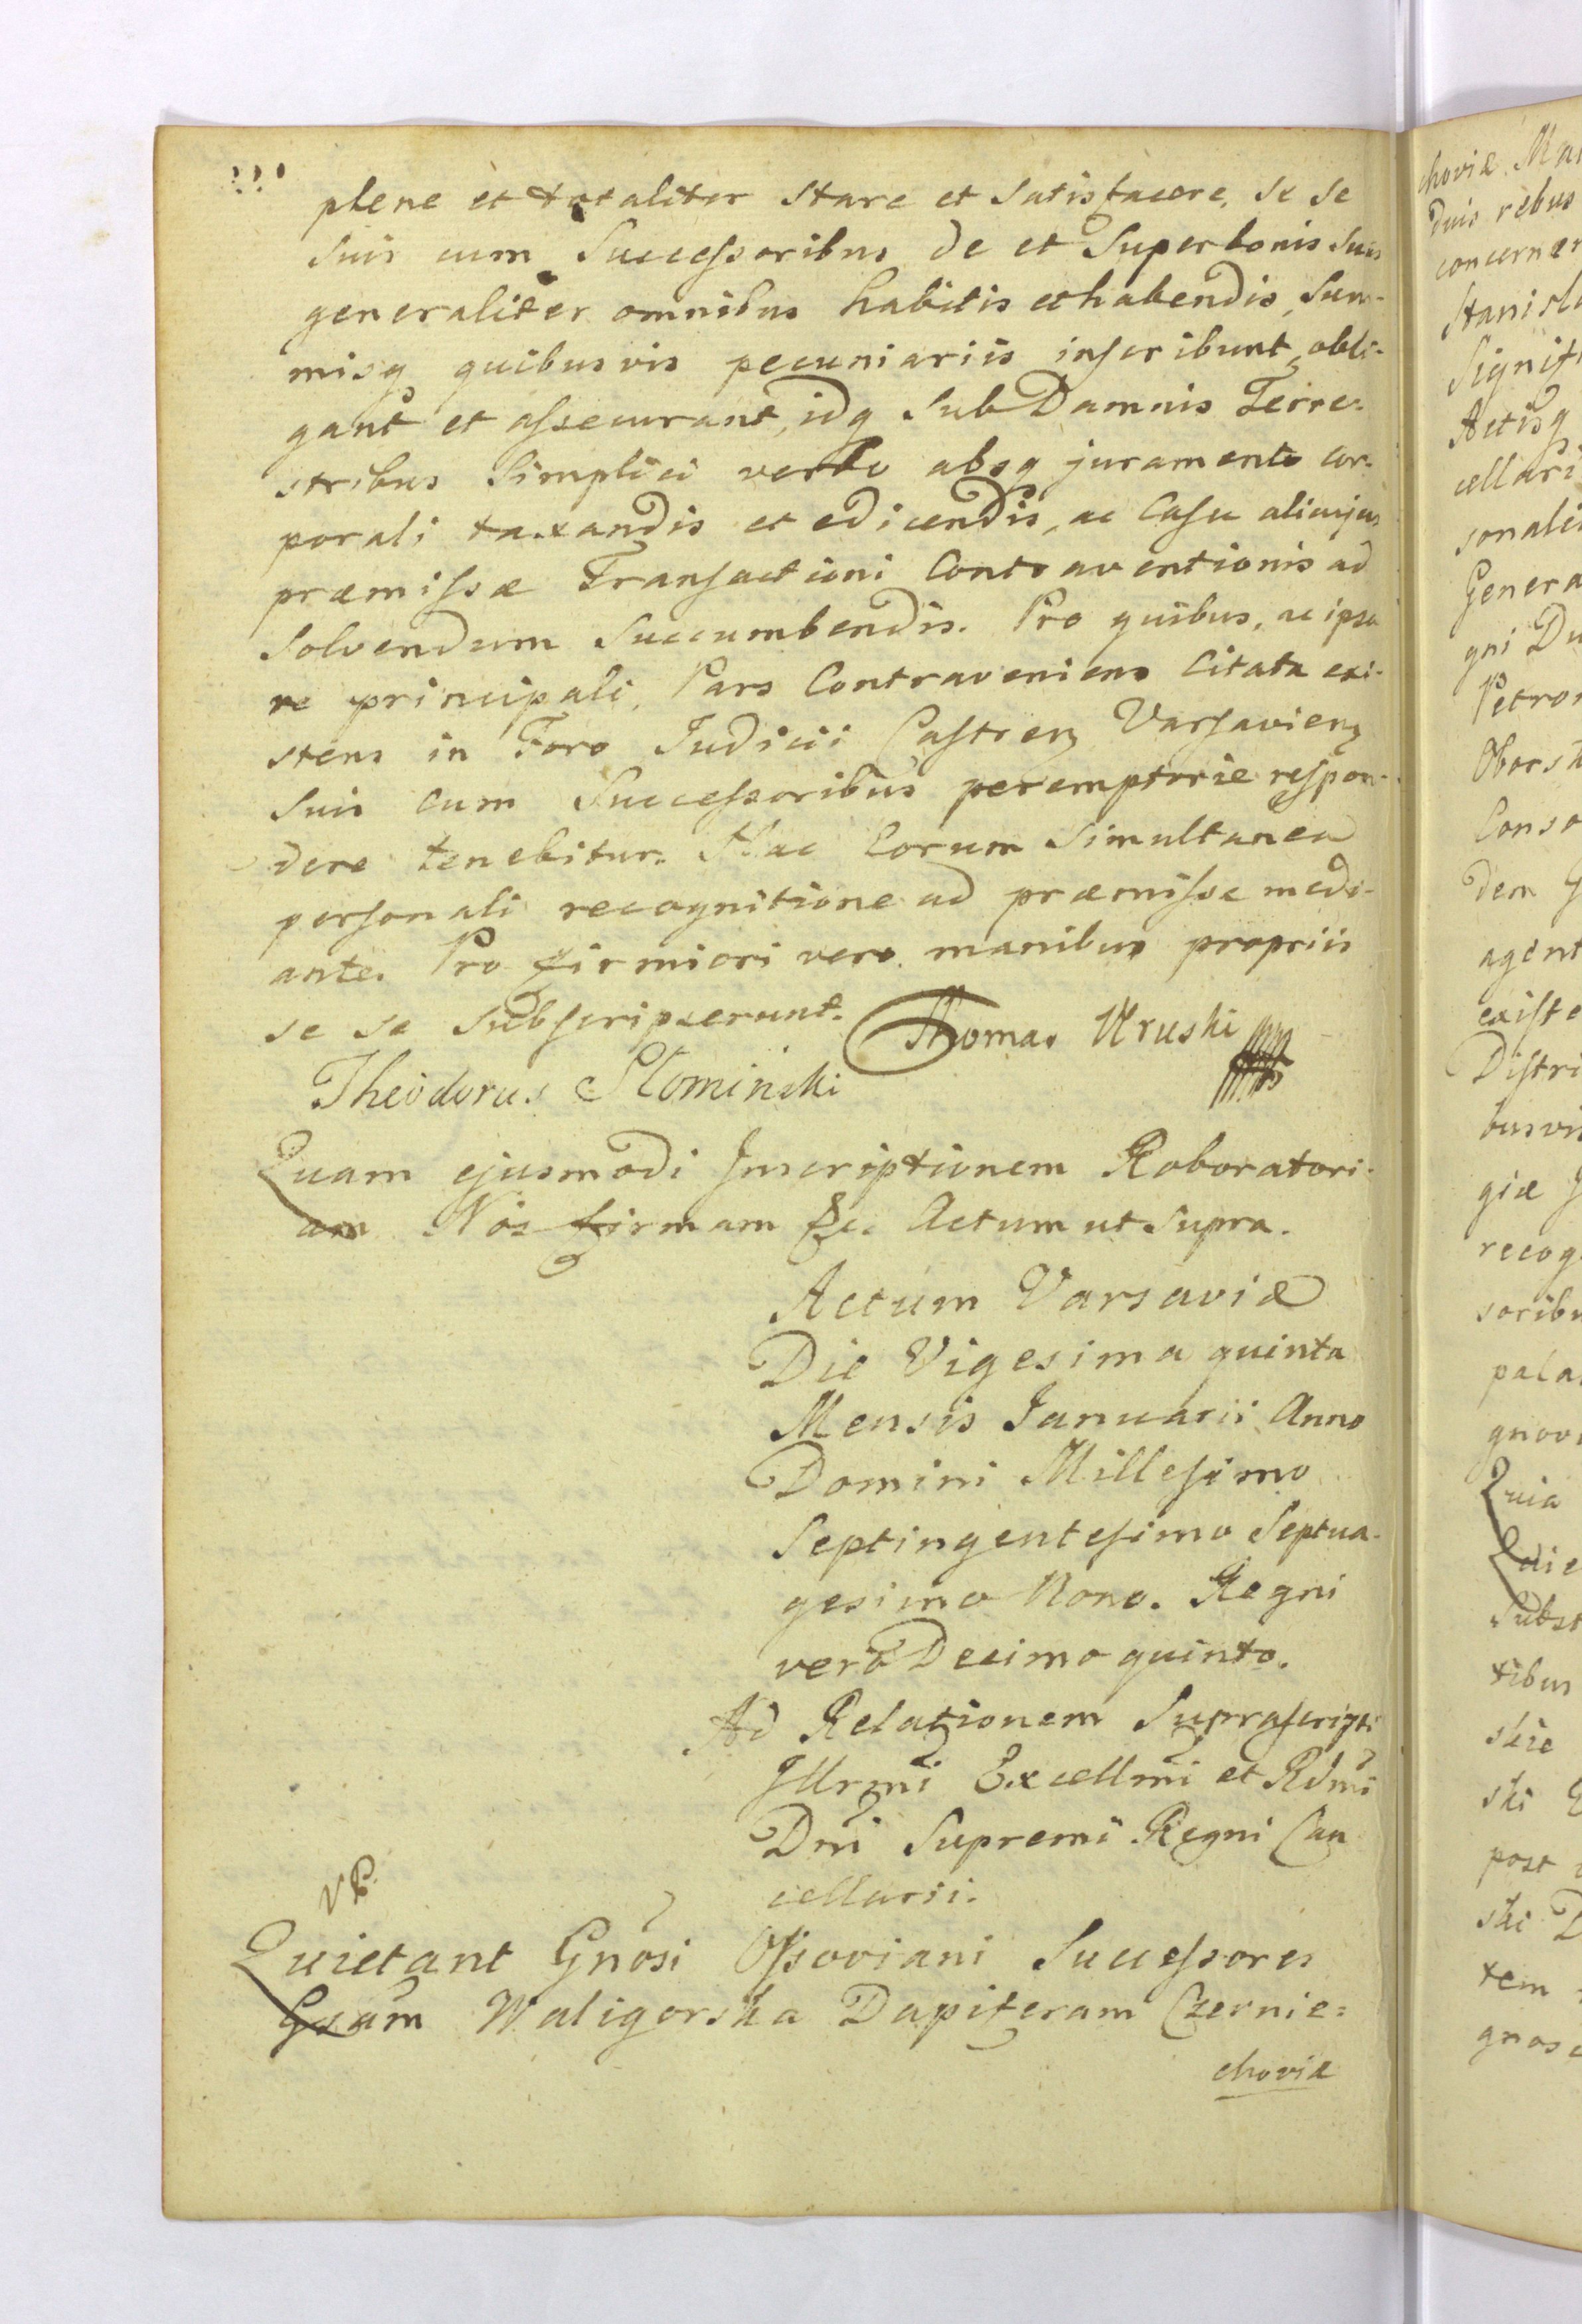 plene et totaliter stare et satisfacere, se se
suis cum Successoribus de et super bonis suis
generaliter omnibus habitis et habendis, Sum-
misq quibusvis pecuniariis inscribunt, obli-
gant et assecurant, idq sub Damnis Terre-
stribus simplici verbo absq juramento cor-
porali taxandis et edicendis, ac Casu alicujus
præmissæ Transactioni Contraventionis ad
solvendum succumbendis. Pro quibus, ac ipsa
re principali, Pars Contraveniens Citata exi-
stens in Foro Judicii Castren Varsavien
suis cum Successoribus peremptorie respon-
dere tenebitur. Hac Eorum simultanea
personali recognitione ad præmissa medi-
ante. Pro firmiori vero manibus propriis
se se subscripserunt. Thomas Uruski
Theodorus Slominski
Quam ejusmodi Inscriptionem Roboratori-
am Nos firmam &c. Actum ut supra.
Actum Varsaviæ
Die Vigesima quinta
Mensis Januarii Anno
Domini Millesimo
Septingentesimo Septua-
gesimo Nono. Regni
vero Decimo quinto.
Ad Relationem Suprascripti
Illrmi Excellmi et Rdmi
Dni Supremi Regni Can
cellarii.
Quietant Gnosi Ossoviani Successores
Gsam Waligorska Dapiferam Czernie=
choviæ
choviæ Mar
duis rebus
concerner
Stanisla
Signifi
Actisq
cellari
sonali
Genera
gni Du
Petron
Oborsk
Conso
dem G
agent
existe
Distri
busvis
giæ J
recog
soribu
pala
gnov
Quia
Subst
tibus
skie
ski
post
ski D
tem
gnosc